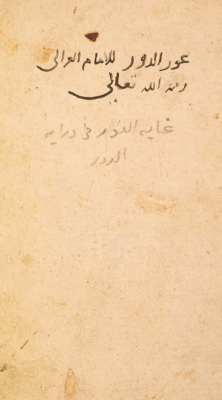 عور الدور للامام الغزالي
رحمه الله تعالى
غاية الغور فى دراية
الدور